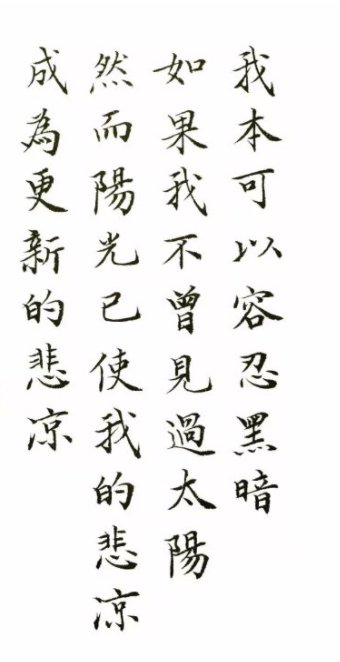 我本可以容忍黑暗
如果我不曾見過太陽
然而陽光已使我的悲凉
成為更新的悲凉